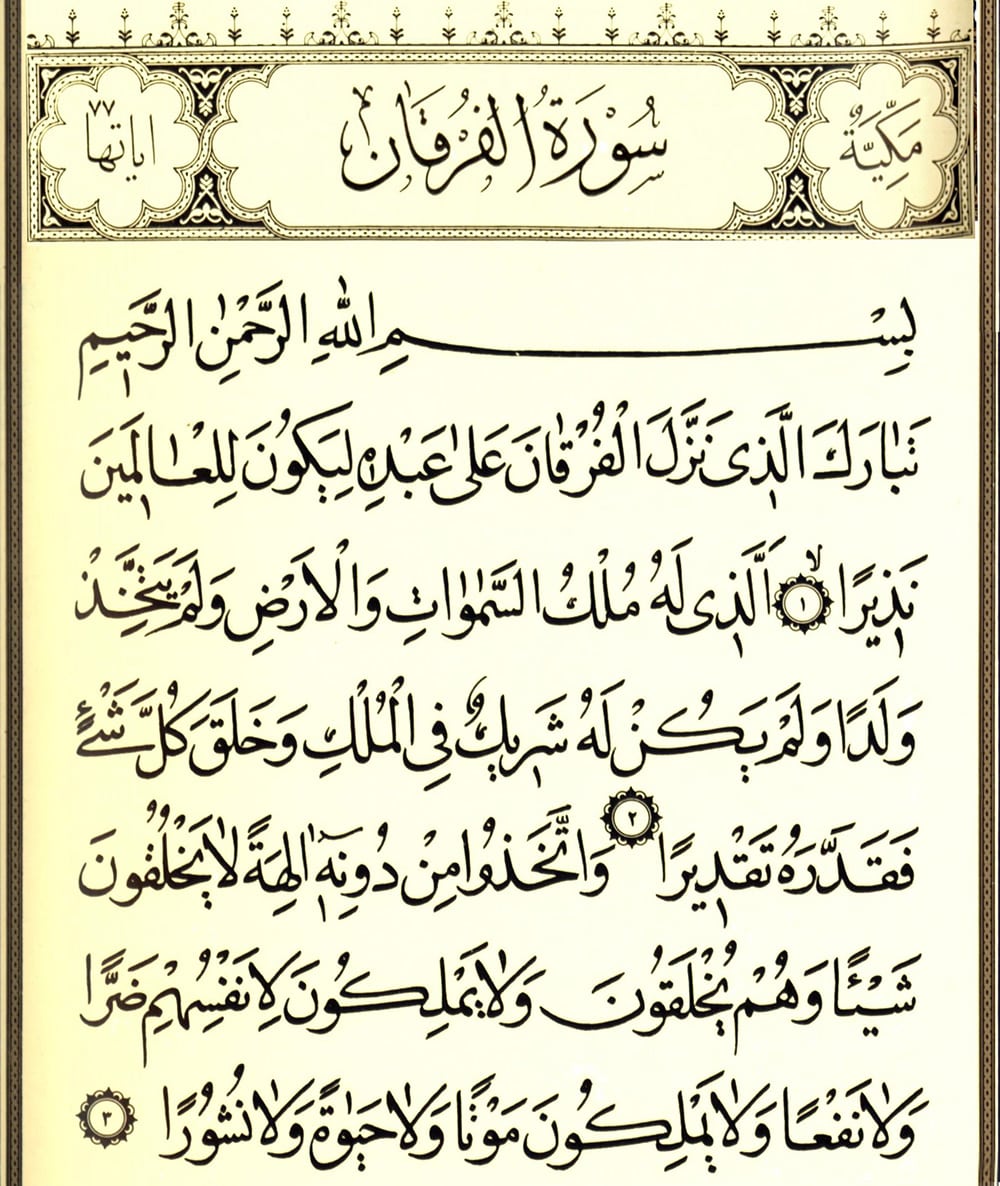 مَكِّيَّةٌ
سُورَةُ الْفُرْقَانِ
اياتها ٧٧
بِسْمِ اللّٰهِ الرَّحْمٰنِ الرَّحٖيمِ
تَبَارَكَ الَّذٖى نَزَّلَ الْفُرْقَانَ عَلٰى عَبْدِهٖ لِيَكُونَ لِلْعَالَمٖينَ
نَذٖيرًاۙ ١ اَلَّذٖى لَهُ مُلْكُ السَّمٰوَاتِ وَالْاَرْضِ وَلَمْ يَتَّخِذْ
وَلَدًا وَلَمْ يَكُنْ لَهُ شَرٖيكٌ فِى الْمُلْكِ وَخَلَقَ كُلَّ شَىْءٍ
فَقَدَّرَهُ تَقْدٖيرًا ٢ وَاتَّخَذُوا مِنْ دُونِهٖٓ اٰلِهَةً لَا يَخْلُقُونَ
شَيْـًٔا وَهُمْ يُخْلَقُونَ وَلَا يَمْلِكُونَ لِاَنْفُسِهِمْ ضَرًّا
وَلَا نَفْعًا وَلَا يَمْلِكُونَ مَوْتًا وَلَا حَيٰوةً وَلَا نُشُورًا ٣